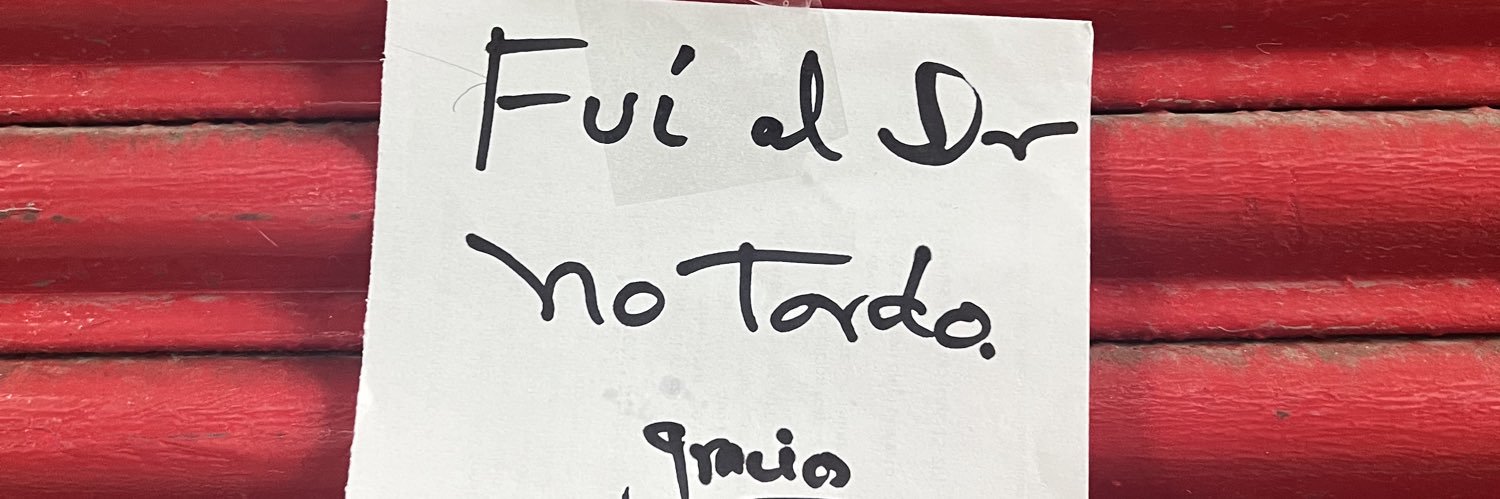 Fuí al Dr
no Tardo.
gracias